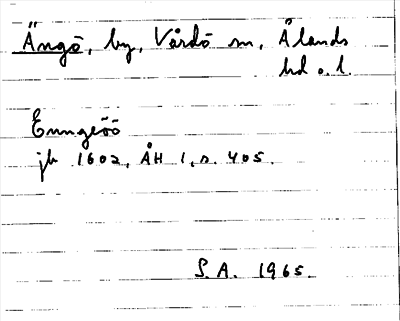 Ängö, by, Vårdö sn, Ålands
hd o. l.
Enngeöö
jb 1602, ÅH 1, s. 405.
S.A. 1965.